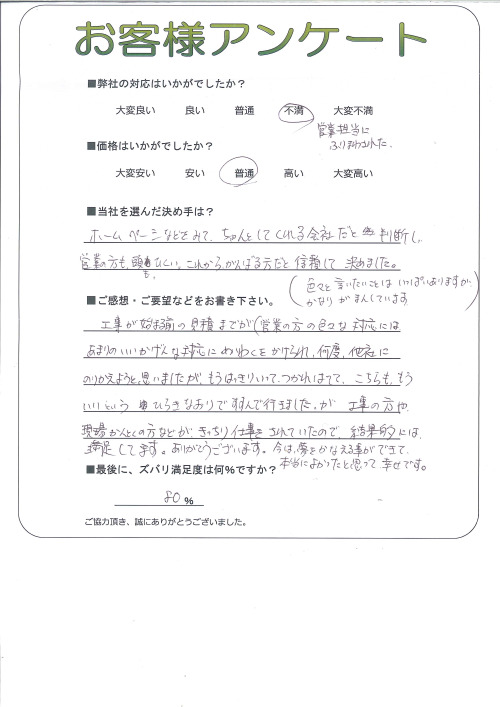 お客様アンケート
■弊社の対応はいかがでしたか？
大変良い 良い 普通 不満 大変不満
営業担当に
ふりまわされた.
■価格はいかがでしたか？
大変安い 安い 普通 高い 大変高い
■当社を選んだ決め手は？
ホームページなどをみて、ちゃんとしてくれる会社だと 判断し、
営業の方も、頭もひくい、これから、がんばる方だと信頼して 決めました。
(色々と言いたいことは いっぱいありますが、
かなり がまんしています)
■ご感想・ご要望などをお書き下さい。
工事が始まる前の見積までが(営業の方の色々な対応には
あまりのいいかげんな対応に めいわくをかけられ、何度、他社に
のりかえようと思いましたが もうはっきりいって、つかれはてて、こちらも、もう
いいという ひらきなおりで すすんで行きました.が 工事の方や
現場かんとくの方などが、きっちり仕事を されていたので、結果的には、
満足してます。ありがとうございます。今は、夢をかなえる事ができて、
本当によかったと思って 幸せです。
■最後に、ズバリ満足度は何%ですか？
80 %
ご協力頂き、誠にありがとうございました。